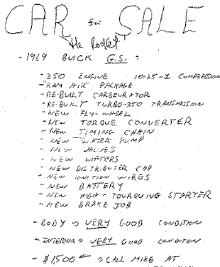 CAR for SALE
"the Rocket"
- 1969 BUICK G.S. :
- 350 ENGINE 10.25-1 COMPRESSION
- RAM AIR PACKAGE
- RE-BUILT CARBURATOR
- RE-BUILT TURBO-350 TRANSMISSION
- NEW FLY-WHEEL
- NEW TORQUE CONVERTER
- NEW TIMING CHAIN
- NEW WATER PUMP
- NEW VALVES
- NEW LIFTERS
- NEW DISTRIBUTER CAP
- NEW IGNITION WIRES
- NEW BATTERY
- NEW HIGH-TOURQUING STARTER
- NEW BRAKE JOB
- BODY is VERY GOOD CONDITION
- INTERIOR is VERY GOOD CONDITION
- $1500 CALL MIKE AT